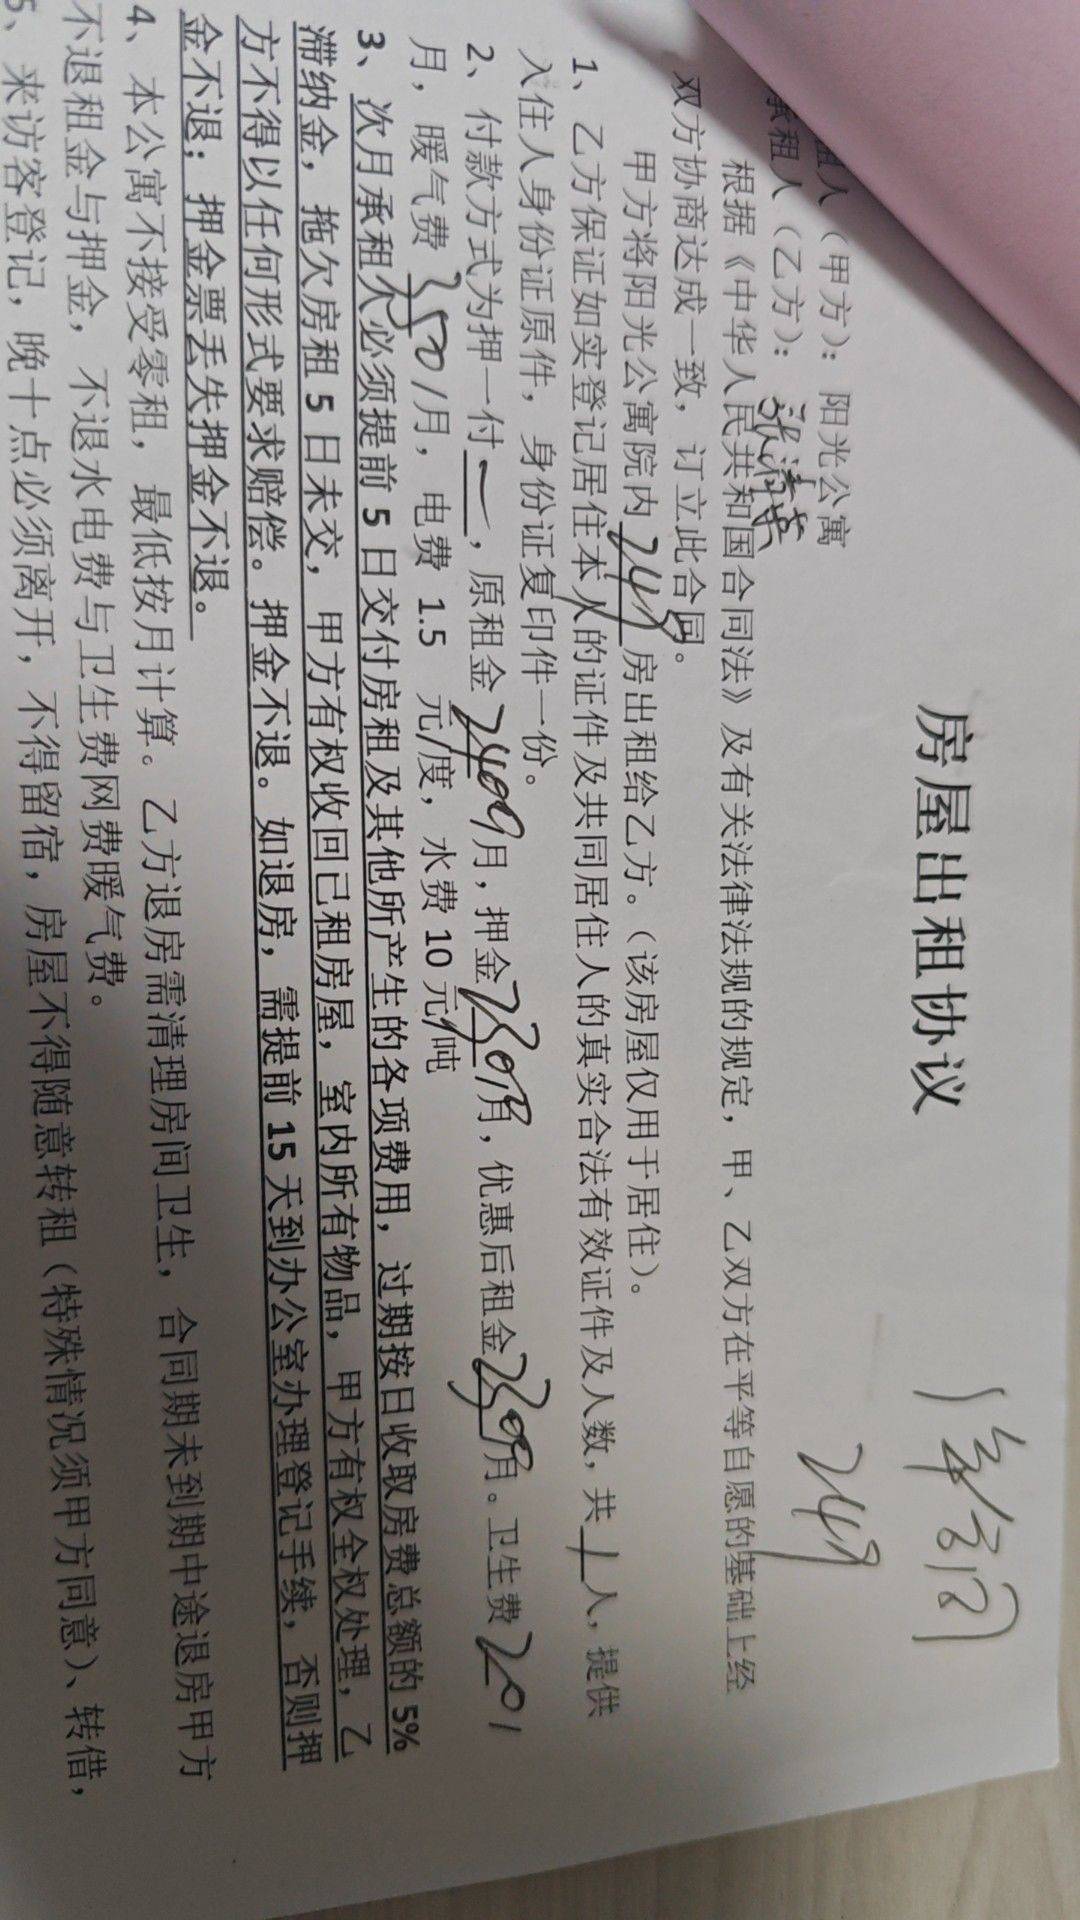 房屋出租协议
249
租人（甲方）：阳光公寓
承租人（乙方）：
根据《中华人民共和国合同法》及有关法律法规的规定，甲、乙双方在平等自愿的基础上经
双方协商达成一致，订立此合同。
甲方将阳光公寓院内 249 房出租给乙方。（该房屋仅用于居住）。
1、乙方保证如实登记居住本人的证件及共同居住人的真实合法有效证件及人数，共 1 人，提供
入住人身份证原件，身份证复印件一份。
2、付款方式为押一付 一 ，原租金 2400/月，押金 2300/月，优惠后租金 2300/月。卫生费 20/
月，暖气费 350/月，电费 1.5 元/度，水费 10 元/吨
3、次月承租人必须提前 5 日交付房租及其他所产生的各项费用，过期按日收取房费总额的 5%
滞纳金，拖欠房租 5 日未交，甲方有权收回已租房屋，室内所有物品，甲方有权全权处理，乙
方不得以任何形式要求赔偿。押金不退。如退房，需提前 15 天到办公室办理登记手续，否则押
金不退；押金票丢失押金不退。
4、本公寓不接受零租，最低按月计算。乙方退房需清理房间卫生，合同期未到期中途退房甲方
不退租金与押金，不退水电费与卫生费网费暖气费。
5、来访客登记，晚十点必须离开，不得留宿，房屋不得随意转租（特殊情况须甲方同意）、转借，